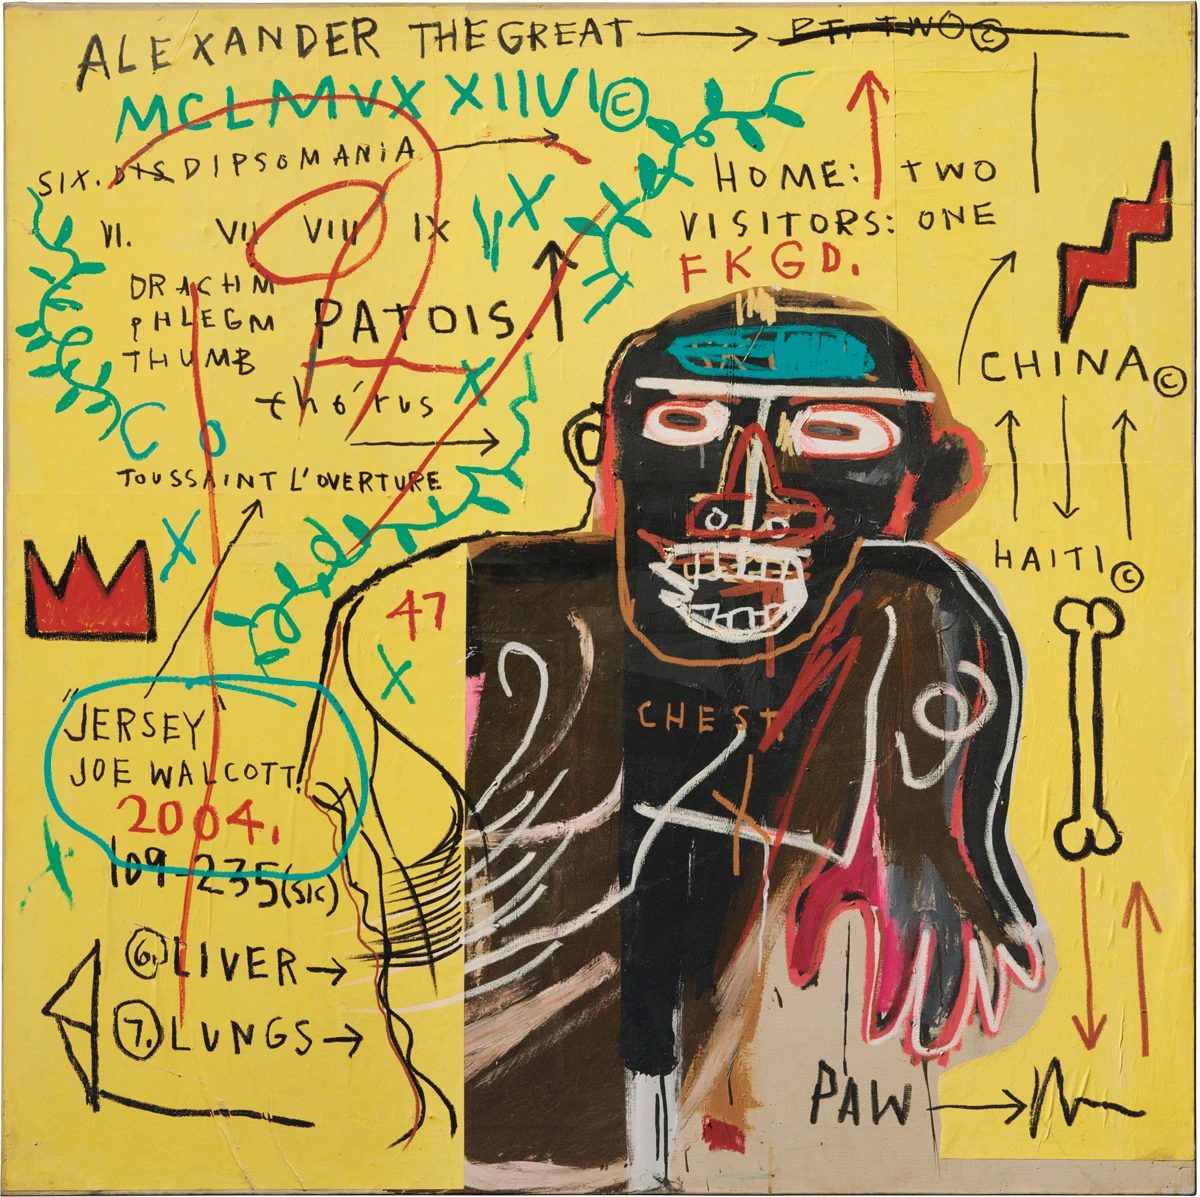 ALEXANDER THE GREAT → PT. TWO©
MCLMVX XIIVI©
SIX. DIS DIPSOMANIA
VI. VII VIII IX
X
HOME: TWO
VISITORS: ONE
FKGD.
DRACHM
PHLEGM
THUMB
PATOIS.
X
thó'rus
CHINA©
TOUSSAINT L'OVERTURE
X
HAITI©
47
X
"JERSEY"
JOE WALCOTT.
2004.
109-235(SIC)
CHEST.
6. LIVER →
7. LUNGS →
PAW →